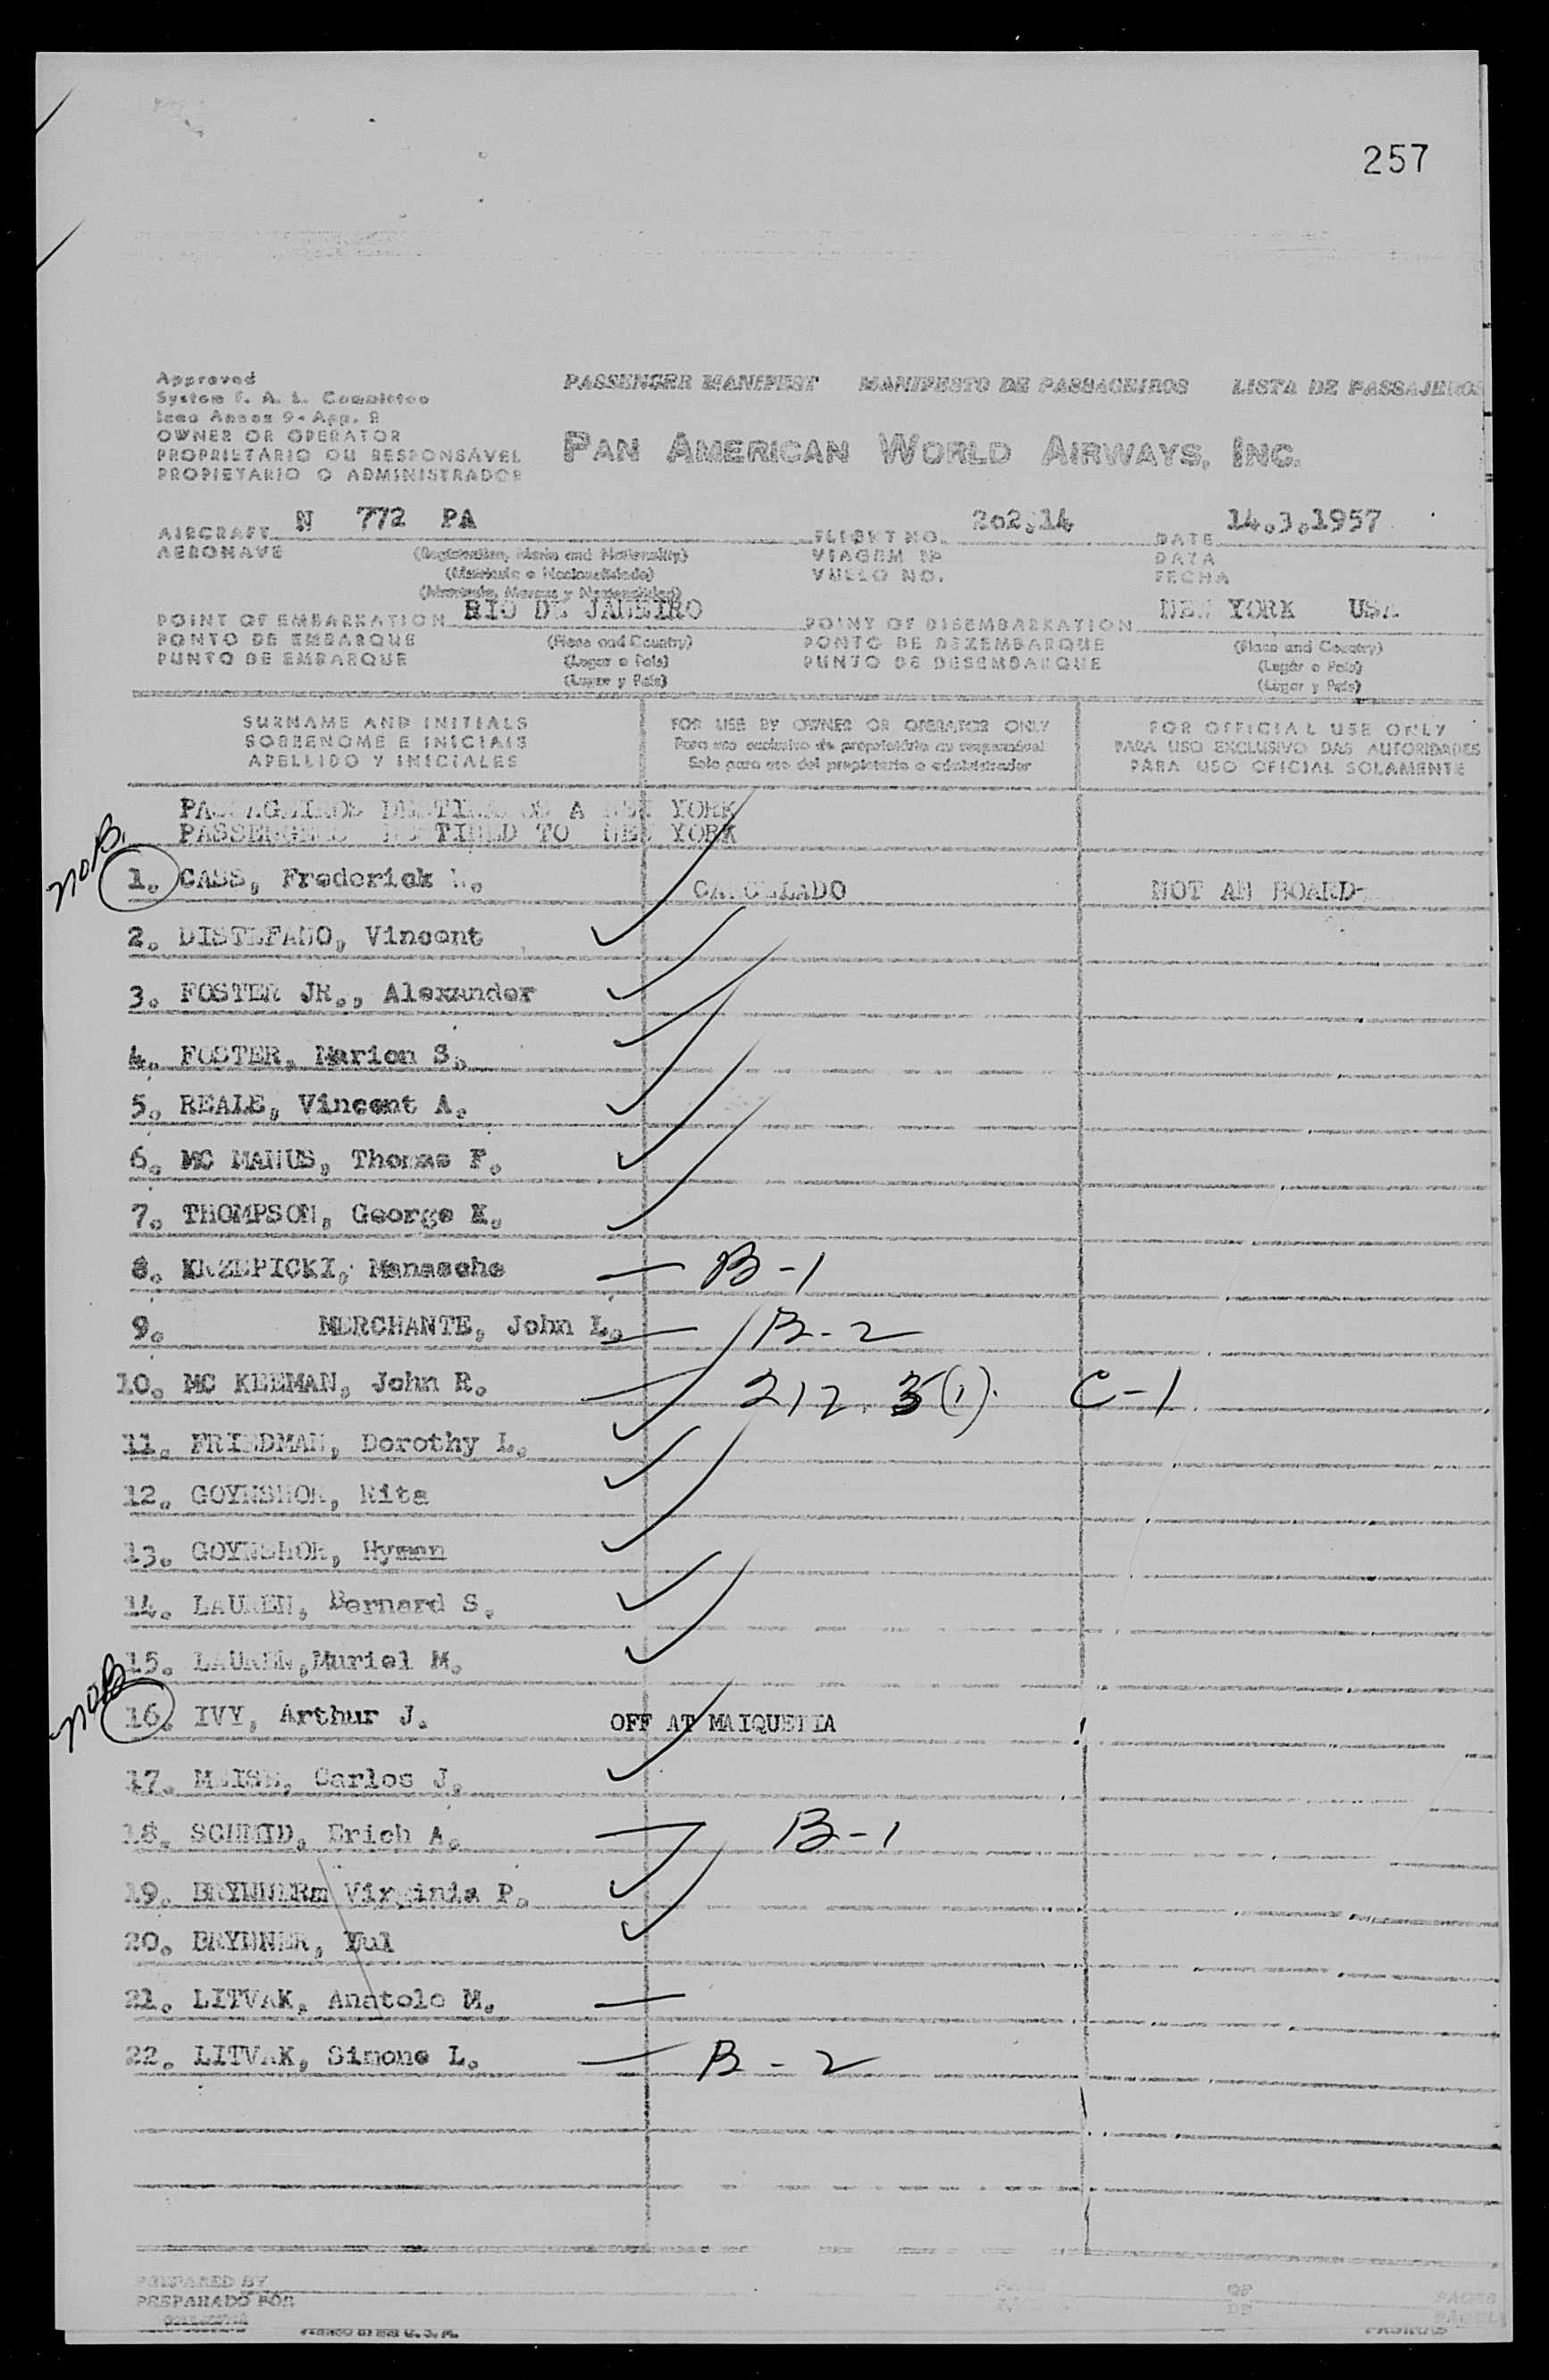 257
Approved
System F. A. L. Committee
Icao Annex 9 - App. 2
OWNER OR OPERATOR
PROPRIETÁRIO OU RESPONSÁVEL
PROPIETARIO O ADMINISTRADOR
PASSENGER MANIFEST MANIFESTO DE PASSAGEIROS LISTA DE PASSAJEROS
PAN AMERICAN WORLD AIRWAYS, INC.
AIRCRAFT N 772 PA FLIGHT NO. 202.14 DATE 14.3.1957
AERONAVE (Registration, Marks and Nationality) VIAGEM Nº DATA
(Matrícula e Nacionalidade) VUELO NO. FECHA
(Matrícula, Marcas y Nacionalidad)
POINT OF EMBARKATION RIO DE JANEIRO POINT OF DISEMBARKATION NEW YORK USA
PONTO DE EMBARQUE (Place and Country) PONTO DE DEZEMBARQUE (Place and Country)
PUNTO DE EMBARQUE (Lugar e País) PUNTO DE DESEMBARQUE (Lugár e País)
(Lugar y País) (Lugar y País)
SURNAME AND INITIALS FOR USE BY OWNER OR OPERATOR ONLY FOR OFFICIAL USE ONLY
SOBRENOME E INICIAIS Para uso exclusivo do proprietário ou responsável PARA USO EXCLUSIVO DAS AUTORIDADES
APELLIDO Y INICIALES Solo para uso del propietario o administrador PARA USO OFICIAL SOLAMENTE
PASSAGEIROS DESTINADOS A NEW YORK
PASSENGERS DESTINED TO NEW YORK
NOB.
1. CASS, Frederick CANCELADO NOT AN BOARD-
2. DISTEFANO, Vincent
3. FOSTER JR., Alexander
4. FOSTER, Marion S.
5. REALE, Vincent A.
6. MC MANUS, Thomas F.
7. THOMPSON, George K.
8. KRZEPICKI, Manasche B-1
9. MERCHANTE, John L. B-2
10. MC KEEMAN, John R. 212.3(1). C-1
11. FRIEDMAN, Dorothy L.
12. GOYNSHOR, Rita
13. GOYNSHOR, Hyman
14. LAUREN, Bernard S.
15. LAUREN, Muriel M.
NOB
16. IVY, Arthur J. OFF AT MAIQUETIA
17. Carlos J.
18. SCHMID, Erich A. B-1
19. BRYNNERm Virginia P.
20. BRYNNER, Yul
21. LITVAK, Anatole M.
22. LITVAK, Simone L. B-2
PREPARED BY OF PAGES
PREPARADO POR DE